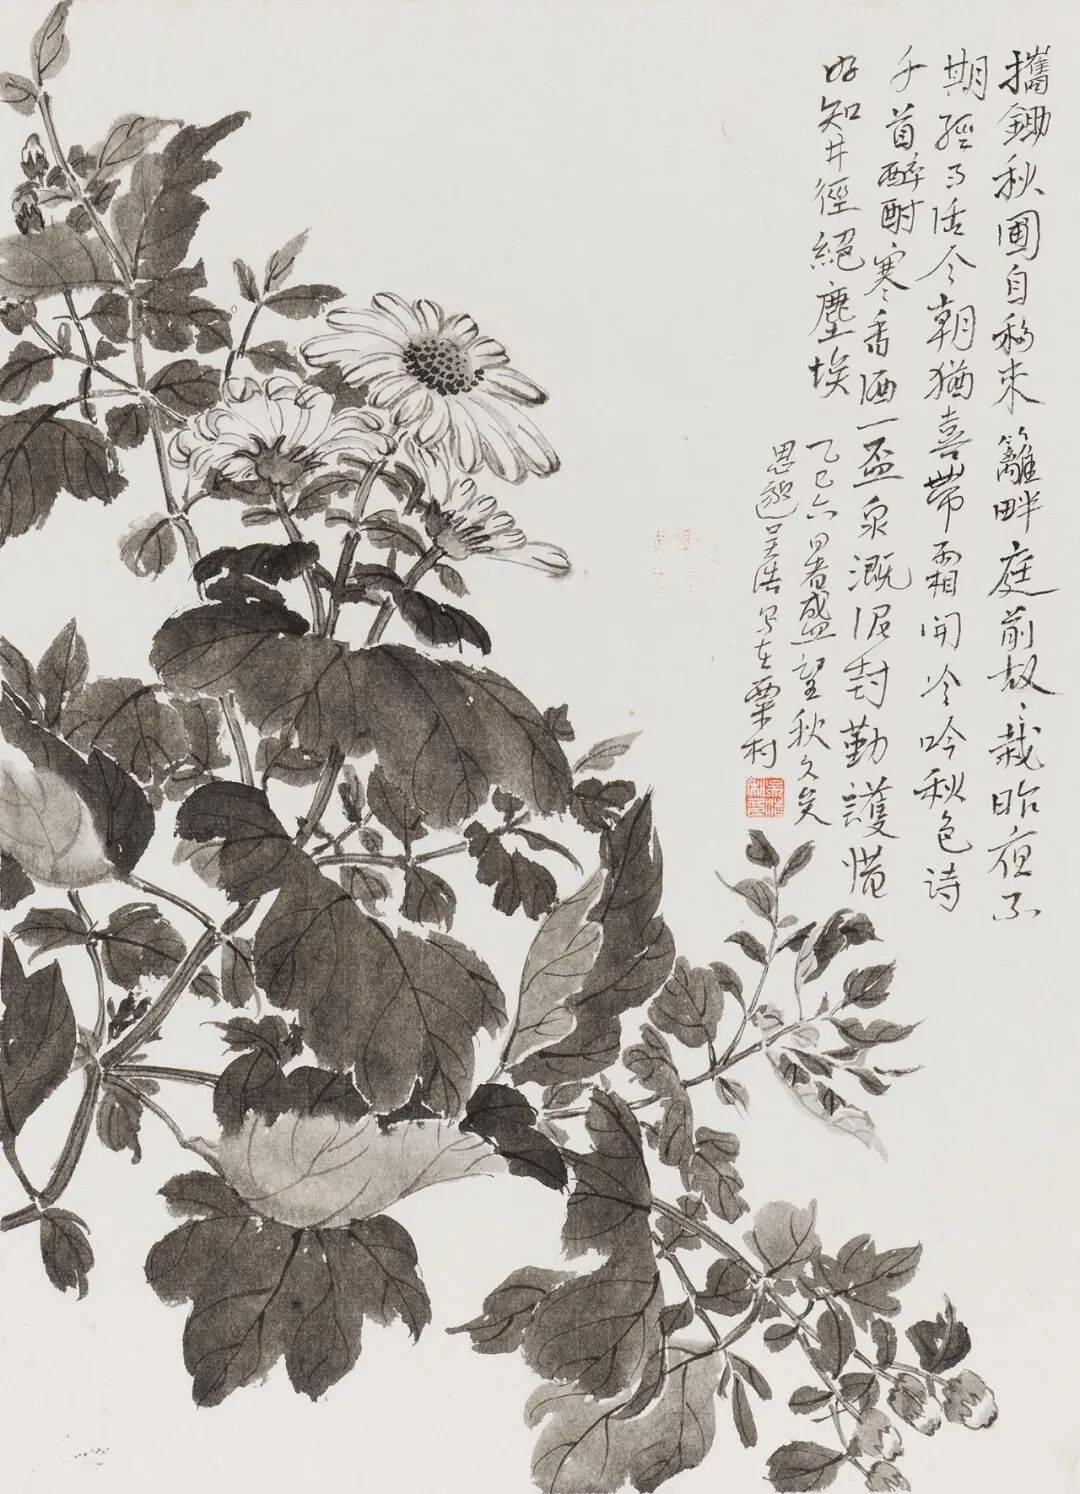 攜鋤秋圃自移来籬畔庭前故々栽昨夜不
期經雨活今朝猶喜帶霜開冷吟秋色诗
千首醉酎寒香酒一盃泉溉泥封勤護惜
好知井徑絕塵埃
乙巳六月暑盛望秋久矣
吴浩写在栗村